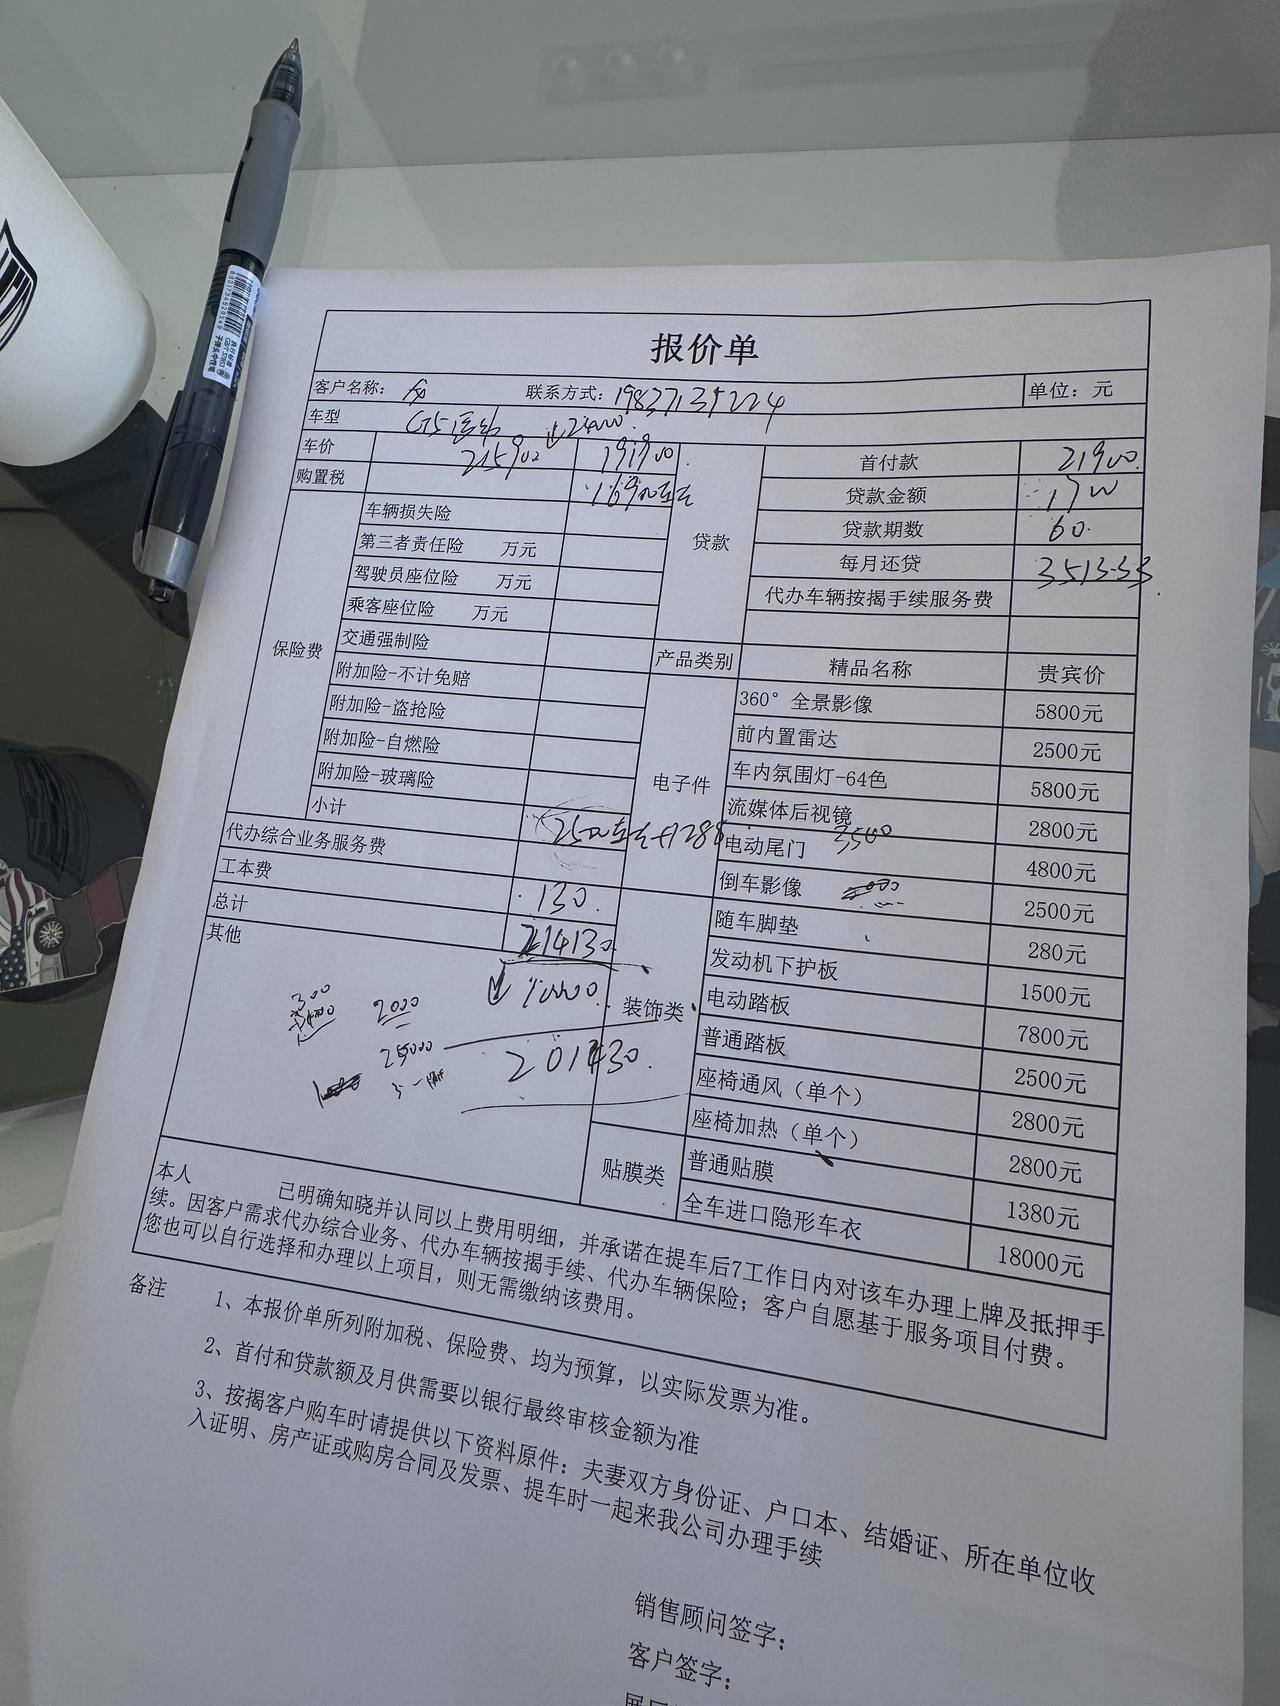 报价单
客户名称： 联系方式：19837135224 单位：元
车型 ↓24000.
车价 215900 191900 首付款 21900.
购置税 16900左右 贷款 贷款金额
车辆损失险 贷款期数 60.
第三者责任险 万元 每月还贷 3513.33
驾驶员座位险 万元 代办车辆按揭手续服务费
乘客座位险 万元
保险费 交通强制险 产品类别 精品名称 贵宾价
附加险-不计免赔 360°全景影像 5800元
附加险-盗抢险 前内置雷达 2500元
附加险-自燃险 电子件 车内氛围灯-64色 5800元
附加险-玻璃险 流媒体后视镜 2800元
小计 电动尾门 3500 4800元
代办综合业务服务费 2500左右 倒车影像 2500元
工本费 130. 随车脚垫 280元
总计 211430 发动机下护板 1500元
其他 ↓10000. 装饰类 电动踏板 7800元
300 2000 普通踏板 2500元
25000 201430. 座椅通风（单个） 2800元
座椅加热（单个） 2800元
贴膜类 普通贴膜 1380元
全车进口隐形车衣 18000元
本人 已明确知晓并认同以上费用明细，并承诺在提车后7工作日内对该车办理上牌及抵押手
续。因客户需求代办综合业务、代办车辆按揭手续、代办车辆保险；客户自愿基于服务项目付费。
您也可以自行选择和办理以上项目，则无需缴纳该费用。
备注 1、本报价单所列附加税、保险费、均为预算，以实际发票为准。
2、首付和贷款额及月供需要以银行最终审核金额为准
3、按揭客户购车时请提供以下资料原件：夫妻双方身份证、户口本、结婚证、所在单位收
入证明、房产证或购房合同及发票、提车时一起来我公司办理手续
销售顾问签字：
客户签字：